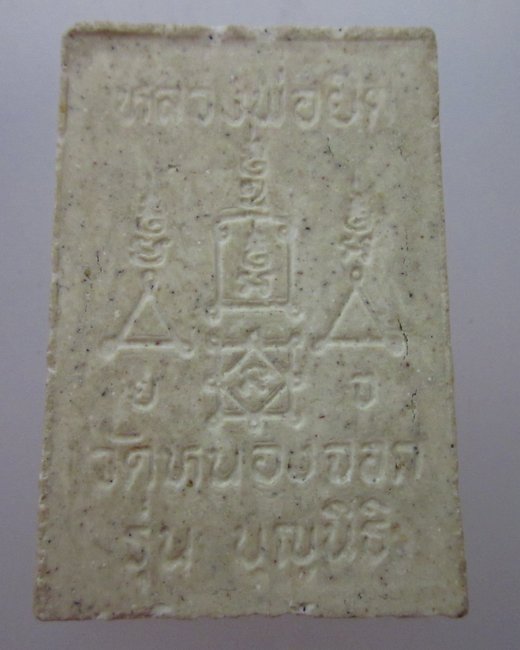 หลวงพ่อยิด
ย จ
วัดหนองจอก
รุ่น บุญนิธิ